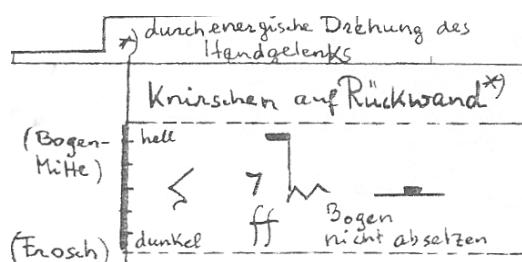 *) durch energische Drehung des
Handgelenks
Knirschen auf Rückwand*)
(Bogen-
Mitte)
hell
ff
Bogen
nicht absetzen
(Frosch)
dunkel